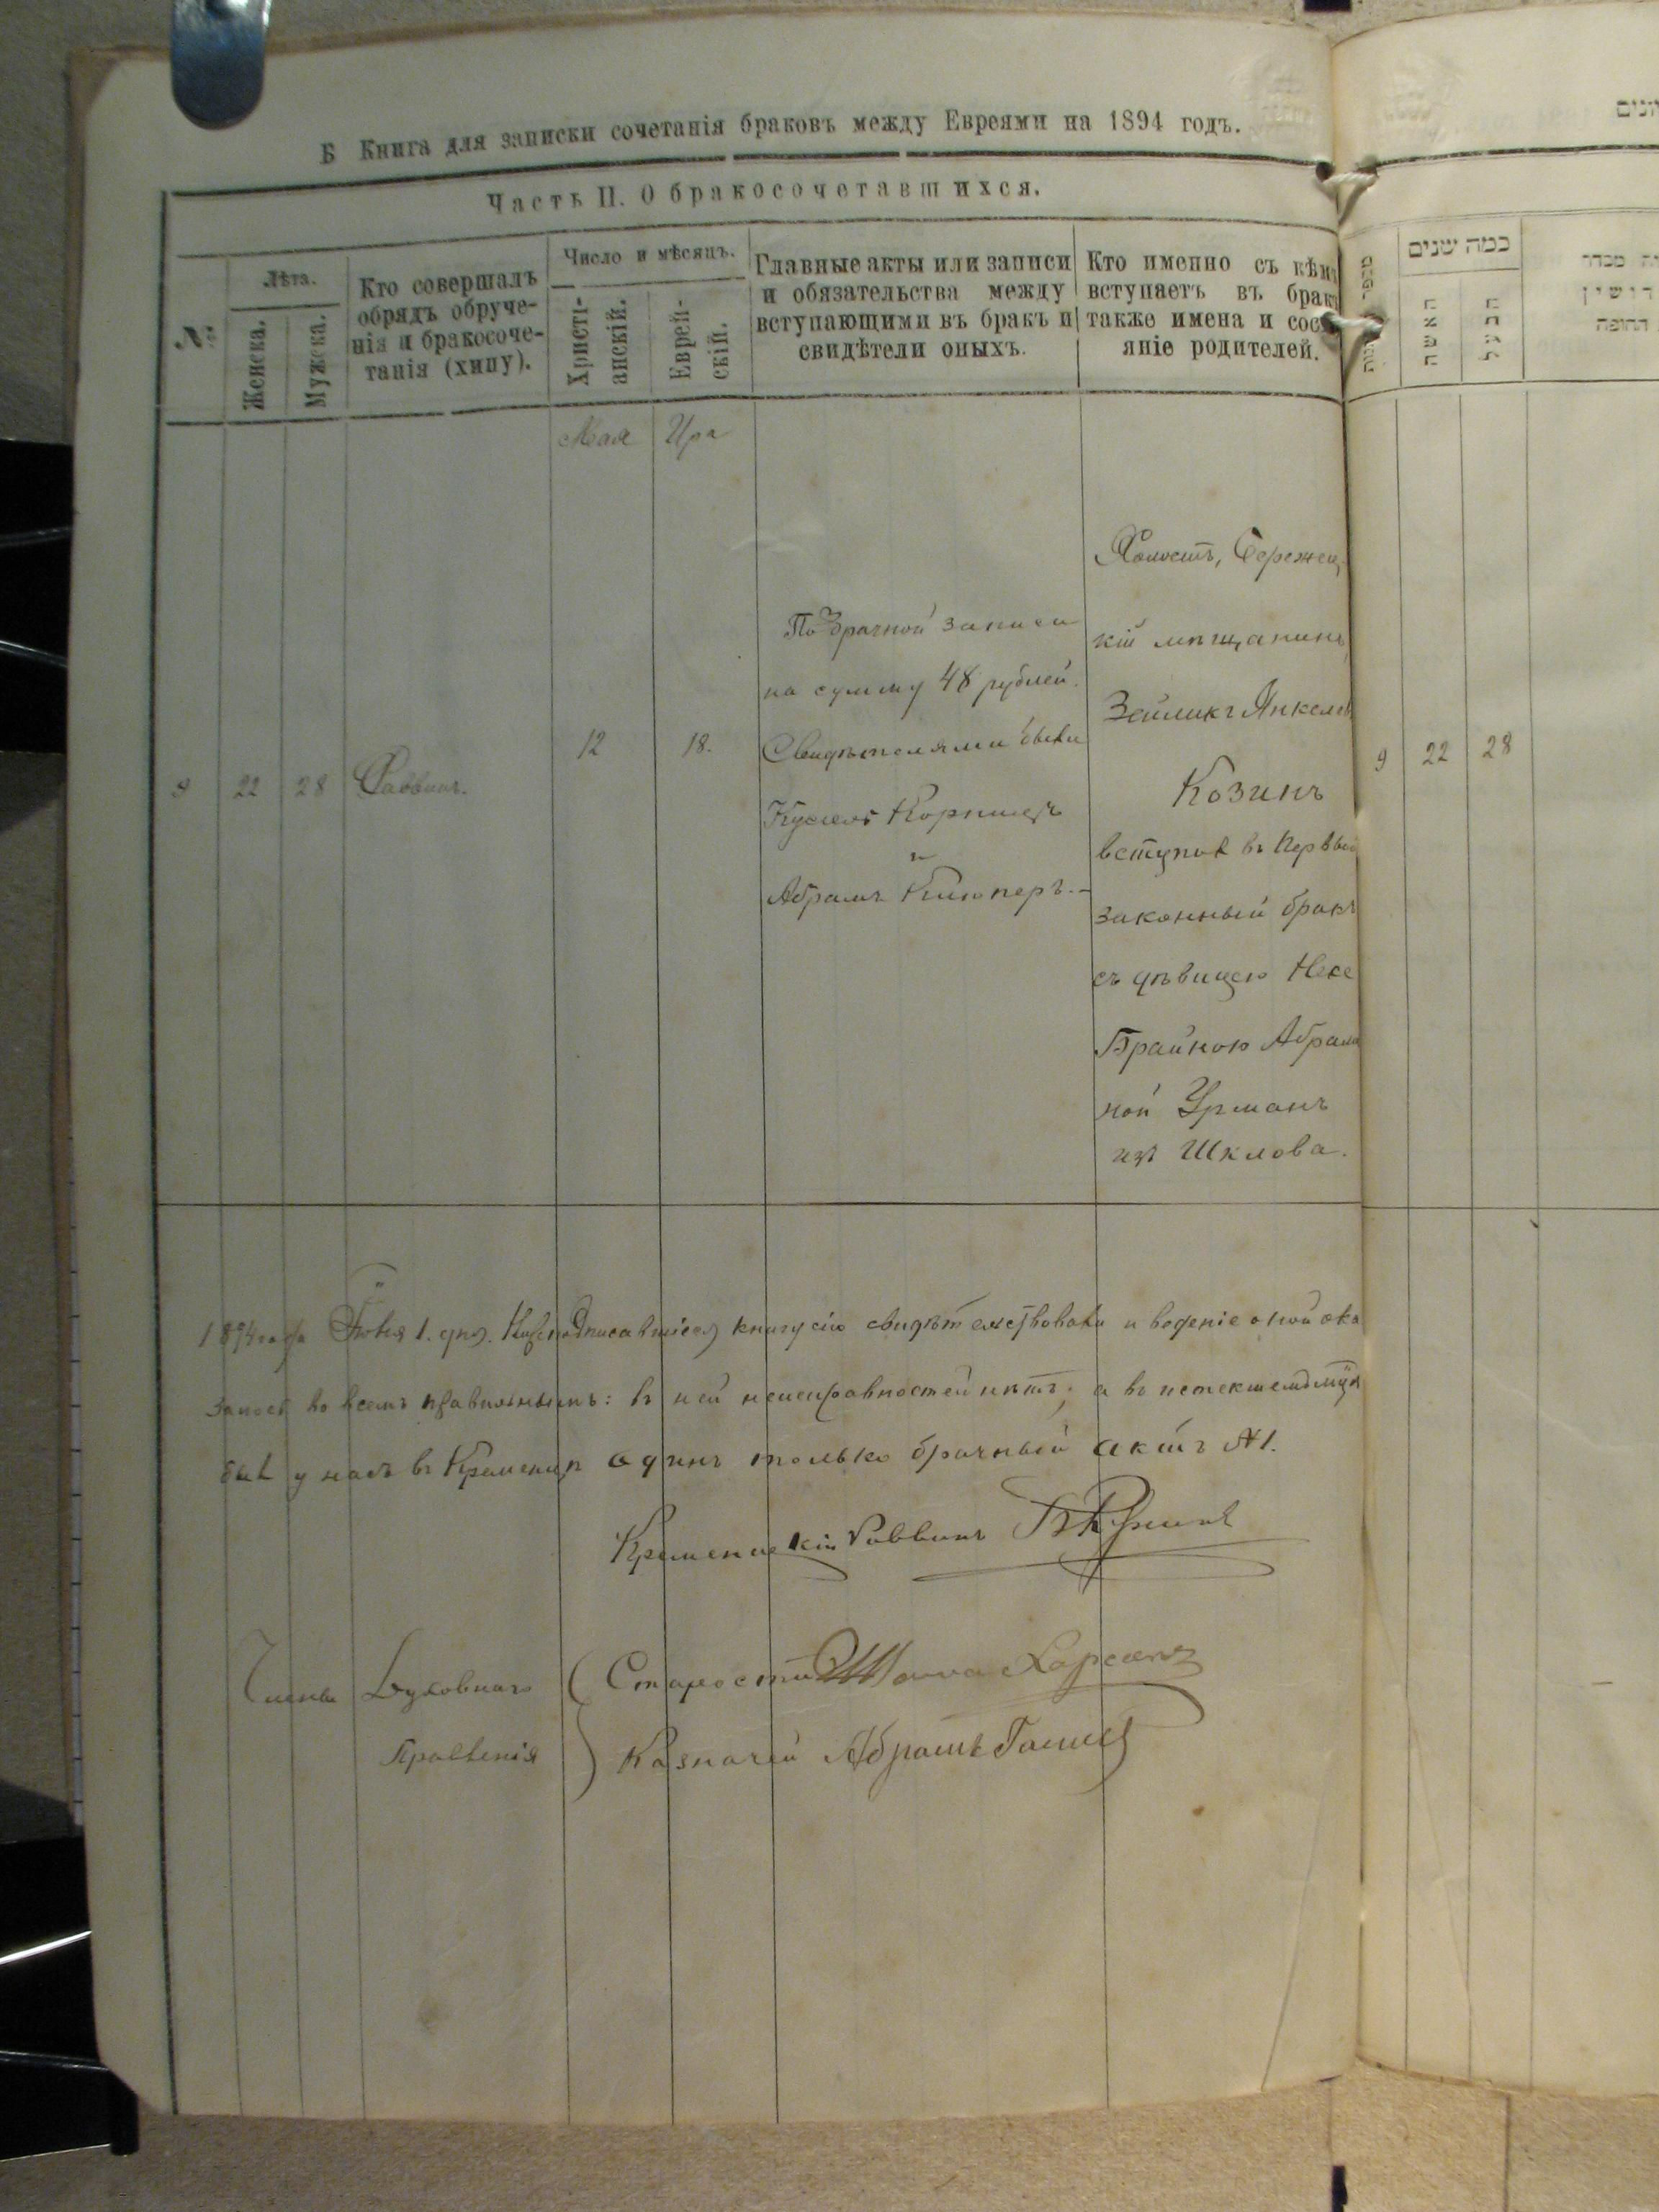 Б Книга для записки сочетанія браковъ между Евреями на 1894 годъ.
Часть II. О бракосочетавшихся.
№
Лѣта.
Женска.
Мужска.
Кто совершалъ
обрядъ обруче-
нія и бракосоче-
танія (хипу).
Число и мѣсяцъ.
Христі-
анскій.
Еврей-
скій.
Главные акты или записи
и обязательства между
вступающими въ бракъ и
свидѣтели оныхъ.
Кто именно съ кѣмъ
вступаетъ въ бракъ
также имена и сос
яніе родителей.
כמה שנים
האשה
הבעל
Мая
Ира
9
22
28
Раввинъ.
12
18.
По брачной записи
на сумму 48 рублей.
Свидѣтелями были
Кусiель
и
Абрамъ
Холостъ, Бережец-
кій мѣщанинъ
Зейликъ Янкелев
Козинъ
вступилъ въ первый
законный бракъ
съ дѣвицею Несе
Брайною Абрамо
ной Урманъ
изъ Шклова.
9
22
28
1894 года Iюня 1. дня. Нижеподписавшіеся книгу сію свидѣтельствовали и веденіе оной ока
залось во всемъ правильнымъ: въ ней неисправностей нѣтъ; а въ истекшемъ маѣ
былъ у насъ въ Кременцѣ одинъ только брачный актъ №1.
Кременецкій Раввинъ
Члены Духовнаго
Правленія
Староста
Казначей Абрамъ